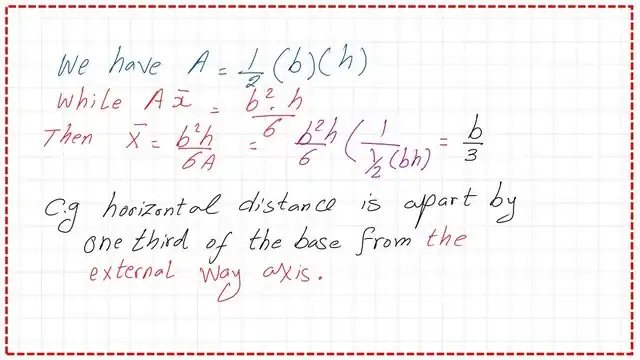 We have A = 1/2 (b)(h)
While A x̄ = b². h / 6
Then x̄ = b²h / 6A = b²h / 6 ( 1 / 1/2 (bh) ) = b / 3
C.g horizontal distance is apart by
one third of the base from the
external way axis.